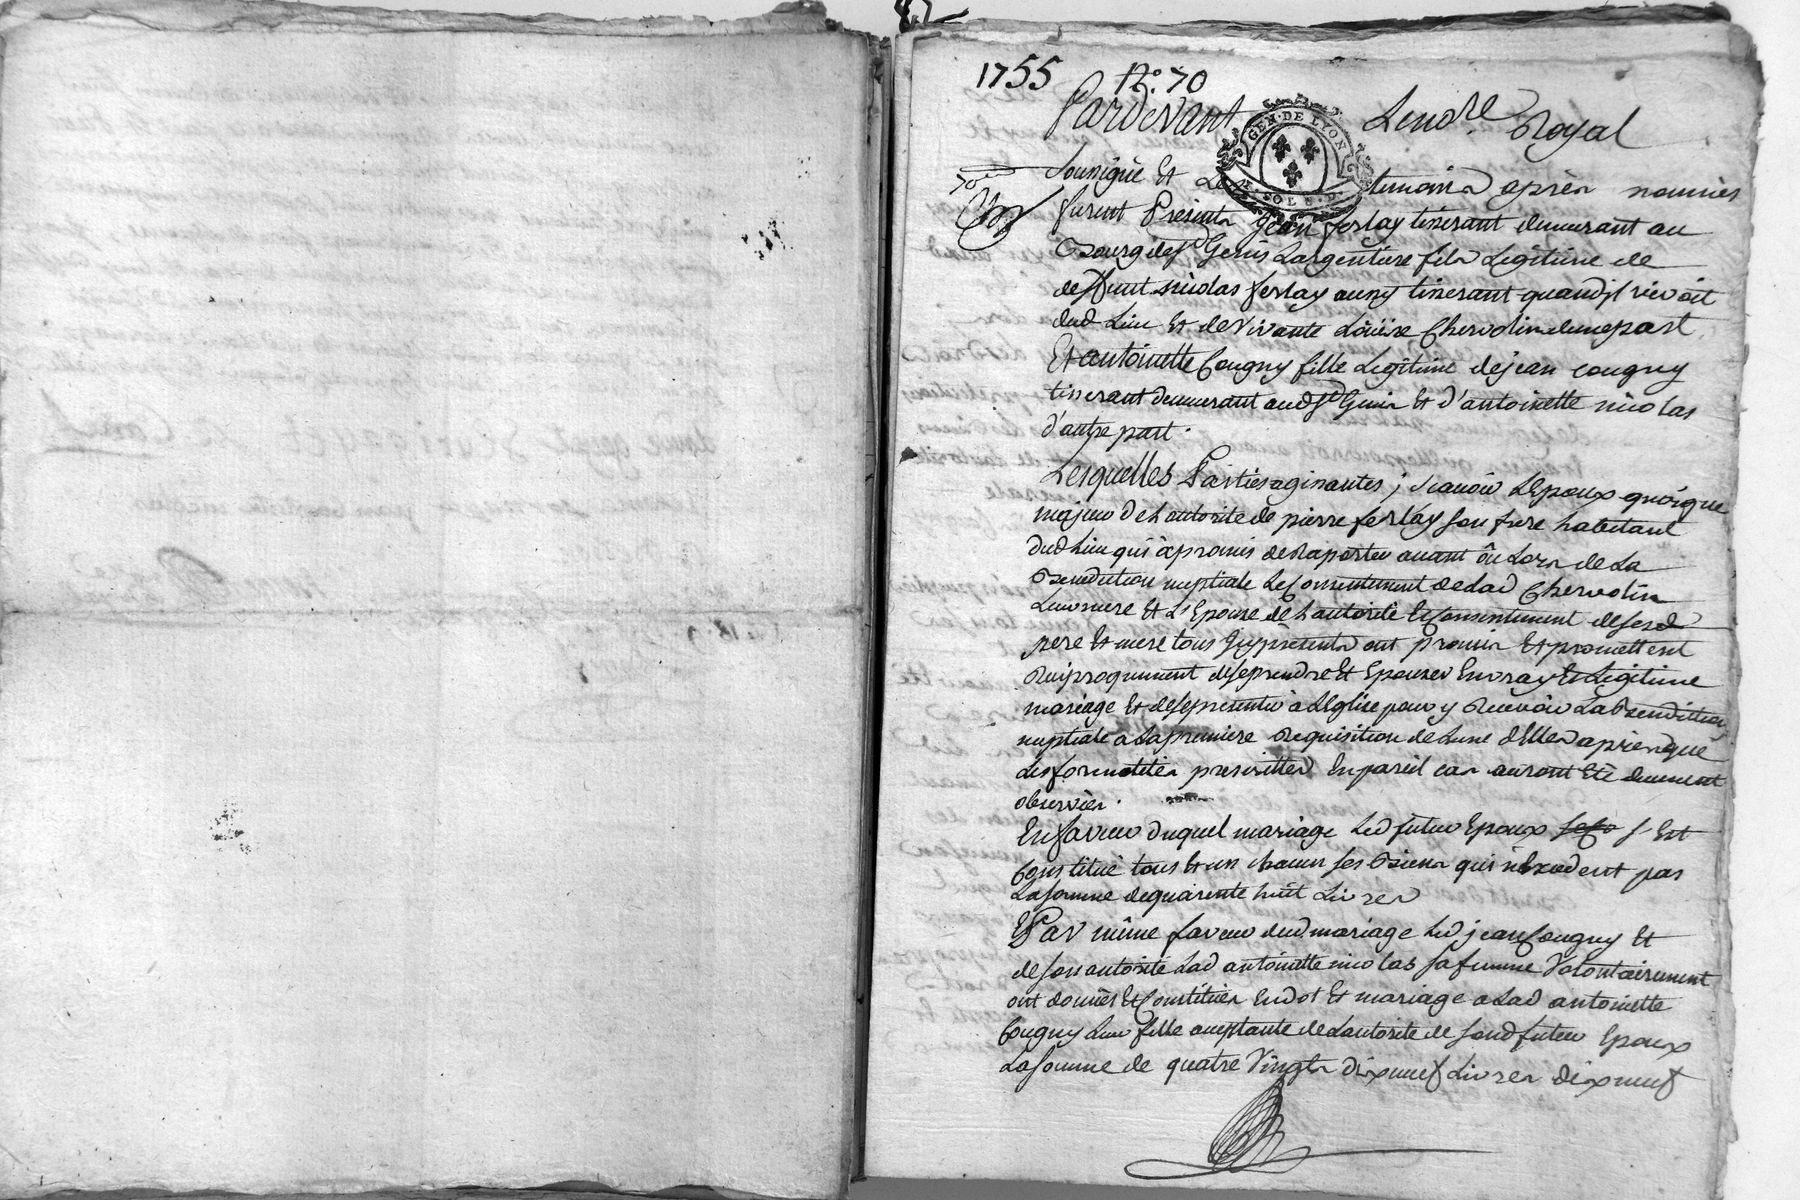 1755 N.° 70
Pardevant Lenore Royal
GEN · DE LYON
soussigné Et Les temoins après nommés
70
furent Présents Jean ferlay tisserant demeurant au
Bourg de st Genis Largentiére fils Légitime de
deffunt nicolas ferlay aussy tisserant quand jl vivoit
dud Lieu Et de Vivante Loüise Chervolin dune part
Et antoinette Cougny fille Légitime de jean cougny
tisserant demeurant aud st Genis Et d'antoinette nicolas
d'autre part.
Lesquelles Parties agissantes ; scavoir L'Epoux quoique
majeur de L'autorité de pierre ferlay son frere habitant
dud Lieu qui à promis de Raporter avant ôu Lors de La
Benediction nuptiale Le Consentement de Lad Chervolin
Leur mere Et L'Epouse de L'autorité Et Consentement de ses d
pere Et mere tous jcy présents ont promis Et promettent
Reciproquement de se prendre Et Epouser En vray Et Légitime
mariage Et de se présenter à L'Eglise pour y Recevoir La Benediction
nuptiale a La premiere Requisition de Lune d'Elles après que
Les formalités prescrittes En pareil cas auront Eté duement
observées.
En faveur duquel mariage Led futur Epoux s'Est
Constitué tous Et un chacun ses Biens qui n'Excedent pas
La somme de quarente huit Livres
Et Par même faveur dud mariage Led jean Cougny Et
de son autorité Lad antoinette nicolas sa femme Volontairement
ont donnés Et Constitués En dot Et mariage a Lad antoinette
Cougny Leur fille acceptante de Lautorité de son d futur Epoux
La somme de quatre Vingts dixneuf Livres dixneuf